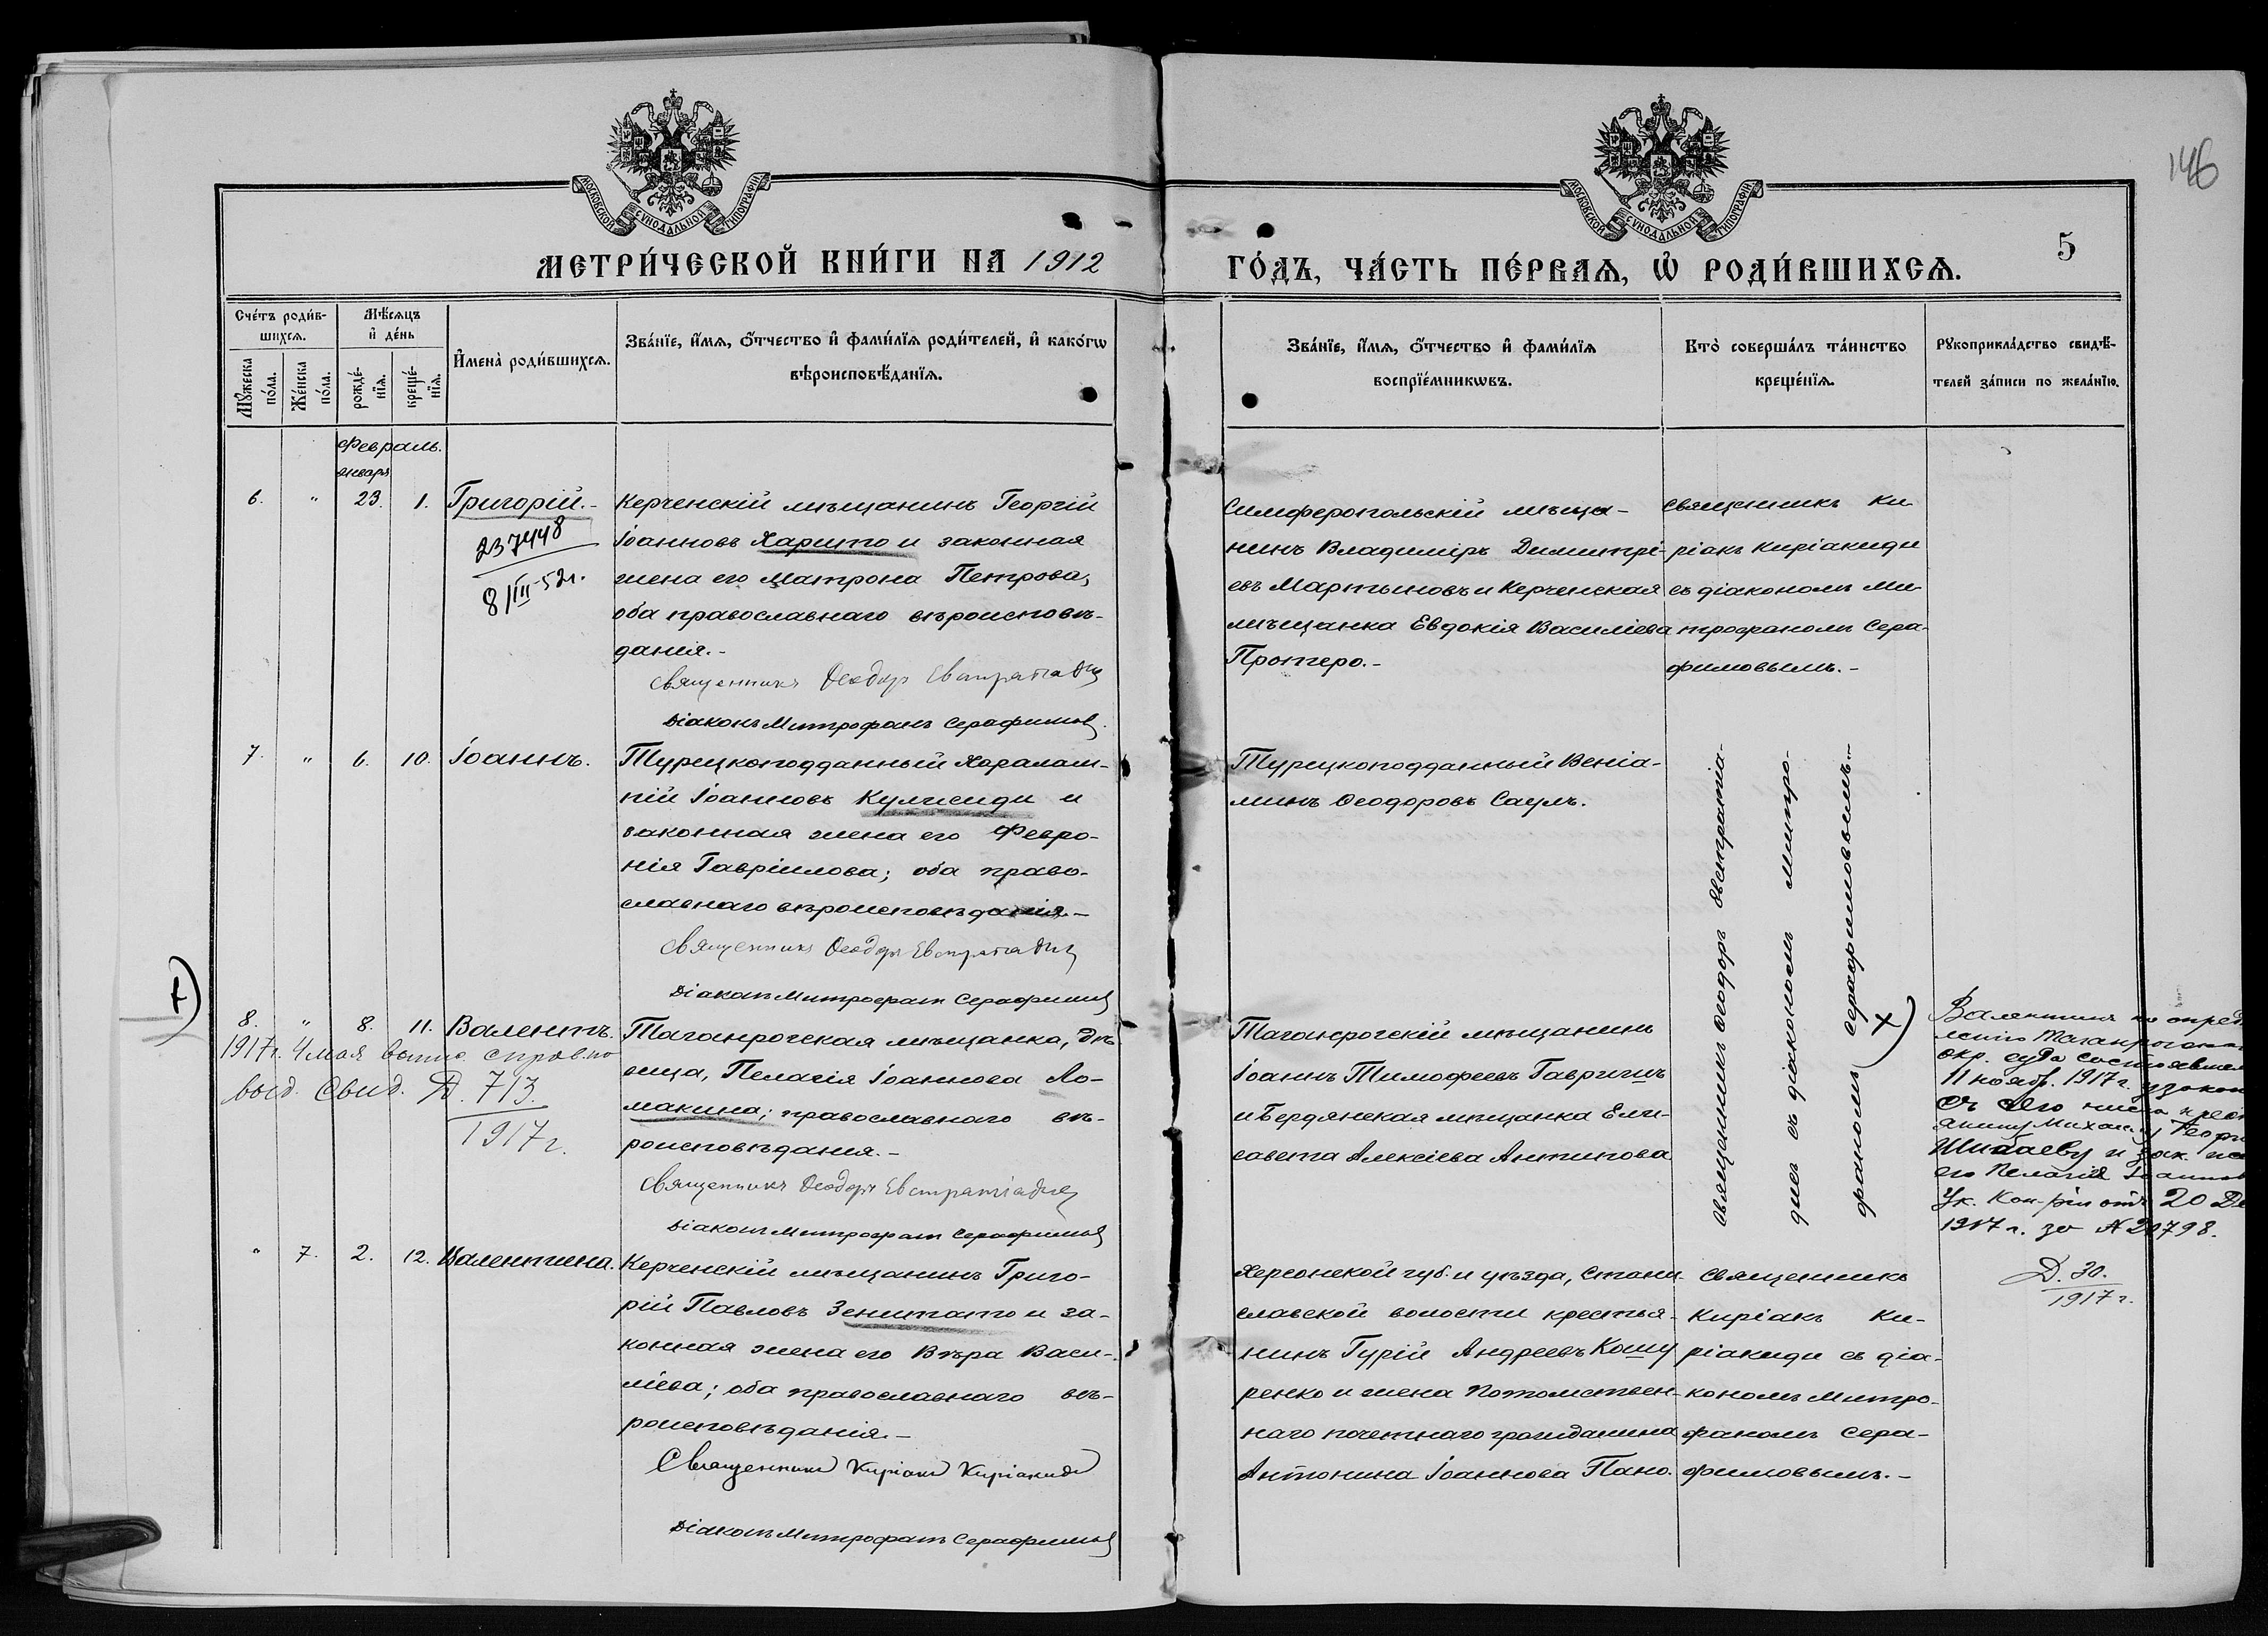 МОСКОВСКОЙ СѴНОДАЛЬНОЙ ТИПОГРАФІИ
МОСКОВСКОЙ СѴНОДАЛЬНОЙ ТИПОГРАФІИ
146
5
МЕТРИ́ЧЕСКОЙ КНИ́ГИ НА 1912
ГО́ДЪ, ЧА́СТЬ ПЕ́РВАѦ, Ѡ҆ РОДИ́ВШИХСѦ.
Сче́тъ роди́в-
шихсѧ.
Мꙋ́жеска по́ла.
Же́нска по́ла.
Мѣ́сѧцъ
и҆ де́нь
рожде́-
нїѧ.
креще́-
нїѧ.
И҆мена̀ роди́вшихсѧ.
Зва́нїе, и҆́мѧ, ѻ҆́тчество и҆ фами́лїѧ роди́телей, и҆ како́гѡ
вѣроисповѣ́данїѧ.
Зва́нїе, и҆́мѧ, ѻ҆́тчество и҆ фами́лїѧ
воспрїе́мникѡвъ.
Кто̀ соверша́лъ та́инство
креще́нїѧ.
Рꙋкоприкла́дство свидѣ́-
телей за́писи по жела́нїю.
Февраль.
января
6. " 23. 1. Григорій.-
237448
8/III-52г.
Керченскій мѣщанинъ Георгій
Іоанновъ Харито и законная
жена его Матрона Петрова,
оба православнаго вѣроисповѣ-
данія.-
Священникъ Ѳеодоръ Евстратіади
Діаконъ Митрофанъ Серафимов
Симферопольскій мѣща-
нинъ Владиміръ Димитрі-
евъ Мартыновъ и Керченская
мѣщанка Евдокія Василіева
Протеро.-
Священникъ Ки
ріакъ Киріакиди
съ діакономъ Ми
трофаномъ Сера-
фимовымъ.-
7. " 6. 10. Іоаннъ.
Турецкоподданный Харалам-
пій Іоанновъ Кулисиди и
законная жена его Февро-
нія Гавріилова; оба право-
славнаго вѣроисповѣданія.-
Священникъ Ѳеодоръ Евстратіади
Діаконъ Митрофанъ Серафимов
Турецкоподданный Веніа-
минъ Ѳеодоровъ Саулъ.
Священникъ Ѳеодоръ Евстратіа-
диев съ діакономъ Митро-
фаномъ Серафимовымъ.-
8. " 8. 11. Валентъ.
1917г. 4 мая выпис. справ. но
выд. Свид. Д. 713.
1917г.
Таганрогская мѣщанка, дѣ-
вица, Пелагія Іоаннова Ло-
макина; православнаго вѣ-
роисповѣдания.-
Священникъ Ѳеодоръ Евстратіади
Діаконъ Митрофанъ Серафимов
Таганрогскій мѣщанинъ
Іоаннъ Тимофеевъ Гавришъ
и Бердянская мѣщанка Ели-
савета Алексіева Антипова
Валентинъ по опред
окр. суда состоявшем
11 ноябр. 1917г. узакон
Михаилу Георг
Шибаеву и зак. же
его Пелагія Іоаннов
Ук. Кон-ріи отъ 20 Де
1917 г. за № 20798.
Д. 30.
1917г.
" 7. 2. 12. Валентина.
Керченскій мѣщанинъ Григо-
рій Павловъ Зенитато и за-
конная жена его Вѣра Васи-
ліева; оба православнаго вѣ-
роисповѣданія.-
Священникъ Киріакъ Киріакиди
Діаконъ Митрофанъ Серафимов
Херсонской губ. и уѣзда, Стани-
славской волости крестья-
нинъ Гурій Андреевъ Кошу
ренко и жена Потомствен-
наго почетнаго гражданина
Антонина Іоаннова Пано.
Священникъ
Киріакъ Ки-
ріакиди съ діа-
кономъ Митро-
фаномъ Сера-
фимовымъ.-